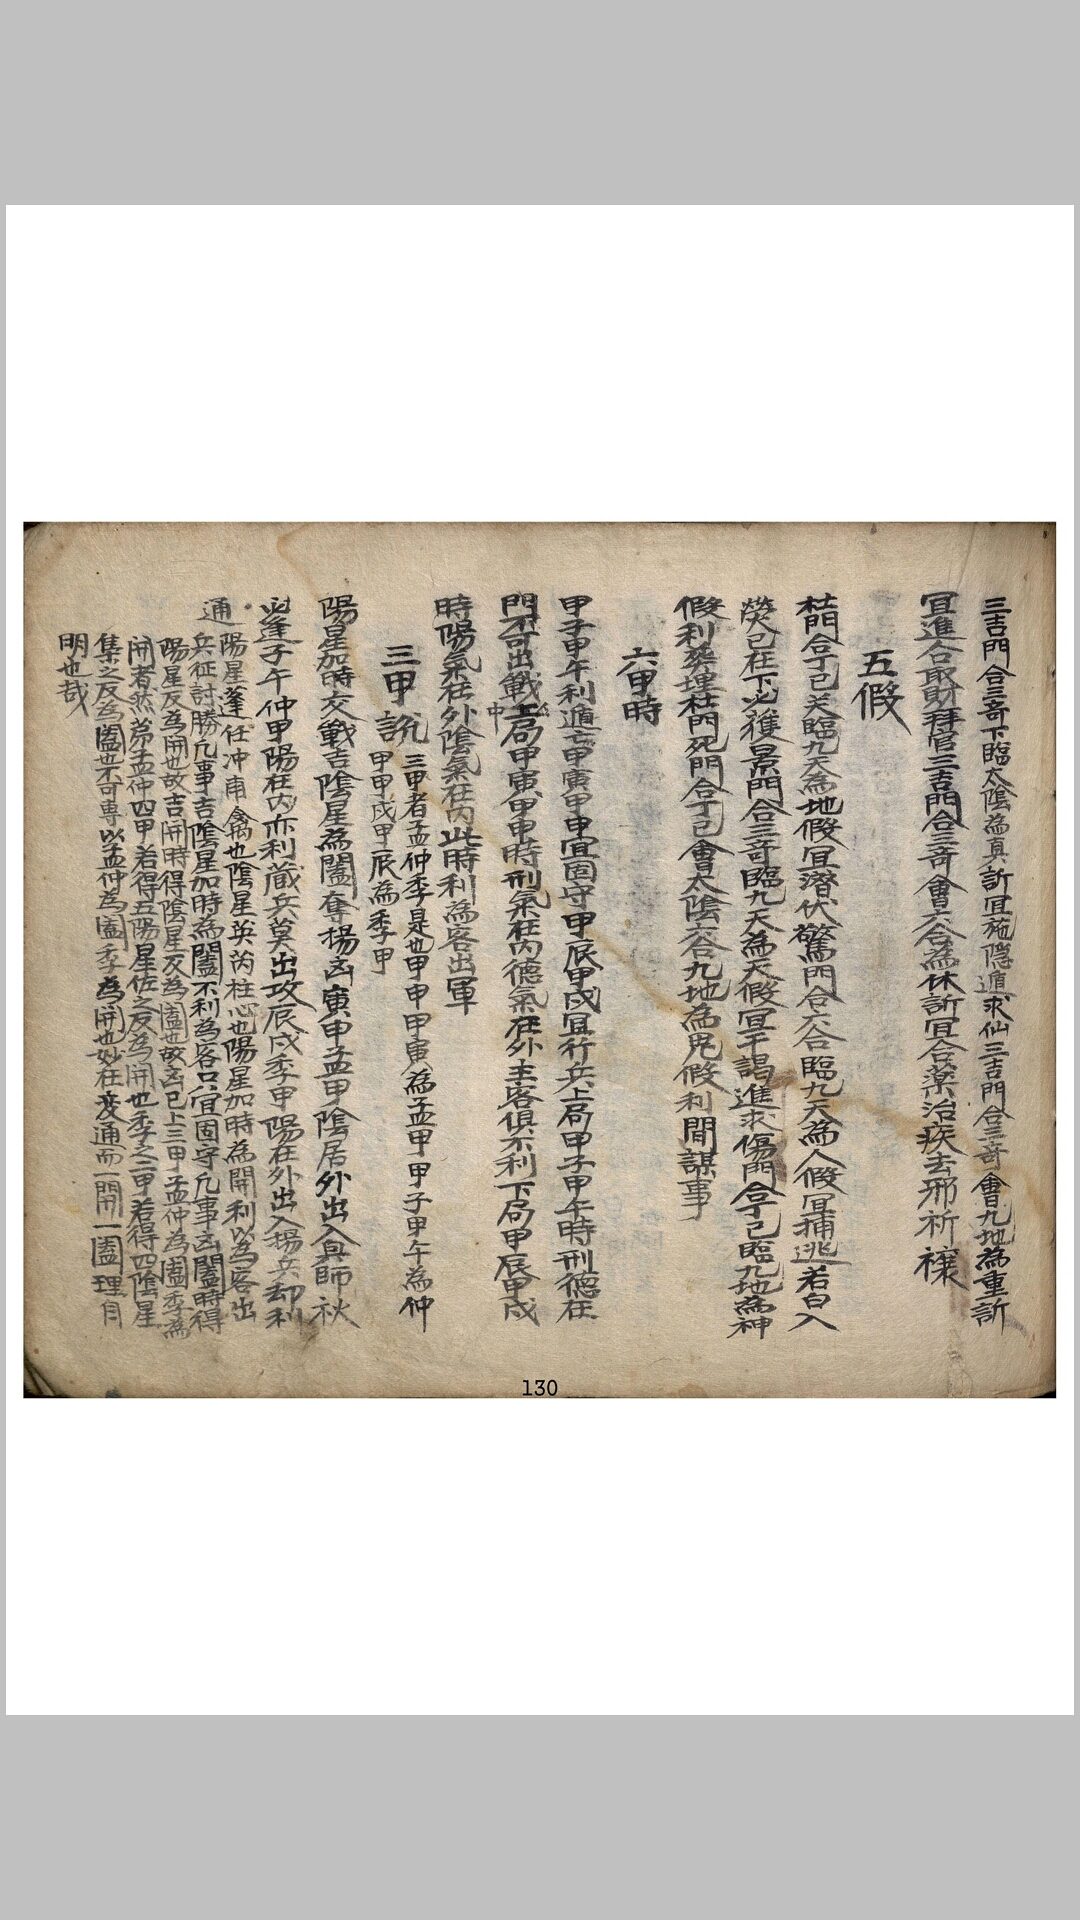 三吉門合三奇下臨太陰為真訴宜施隱遁求仙三吉門合三奇會九地為重訴
宜進合取財拜官三吉門合三奇會六合為休訴宜合藥治疾去邪祈禳
五假
杜門合丁己癸臨九天為地假宜潛伏驚門合六合臨九天為人假宜捕逃若白入
熒己在下必獲景門合三奇臨九天為天假宜干謁進求傷門合丁己臨九地為神
假利葬埋杜門死門合丁己會太陰六合九地為鬼假利間謀事
六甲時
甲子甲午利遁亡甲寅甲申宜固守甲辰甲戌宜行兵上局甲子甲午時刑德在
門不可出戰中局甲寅甲申時刑氣在內德氣在外主客俱不利下局甲辰甲戌
時陽氣在外陰氣在內此時利為客出軍
三甲說 三甲者孟仲季是也甲申甲寅為孟甲甲子甲午為仲
甲甲戌甲辰為季甲
陽星加時交戰吉陰星為闔奪揚凶寅申孟甲陰居外出入興師秋
必逢子午仲甲陽在內亦利藏兵莫出攻辰戌季甲陽在外出入揚兵却利
通 陽星蓬任冲甫禽也陰星英芮柱心也陽星加時為開利以為客出
兵征討勝凡事吉陰星加時為闔不利為客只宜固守凡事凶闔時得
陽星反為開也故吉開時得陰星反為闔也故凶已上三甲孟仲為闔季為
開者然苐孟仲四甲若得五陽星佐之反為開也季之二甲若得四陰星
集之反為闔也不可專以孟仲為闔季為開也妙在變通而一開一闔理自
明也哉